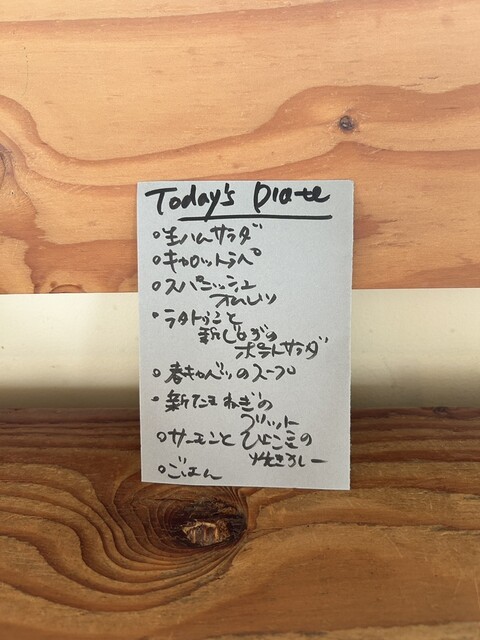 Today's Plate
○生ハムサラダ
○キャロットラペ
○スパニッシュ
オムレツ
○ラタトゥユと
新じゃがの
ポテトサラダ
○春キャベツのスープ
○新たまねぎの
フリット
○サーモンとひよこ豆の
焼きカレー
○ごはん